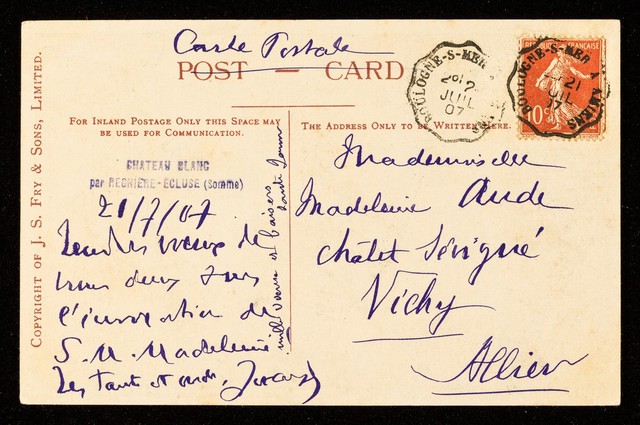 Carte Postale
POST — CARD
FOR INLAND POSTAGE ONLY THIS SPACE MAY
BE USED FOR COMMUNICATION.
THE ADDRESS ONLY TO BE WRITTEN HERE.
COPYRIGHT OF J. S. FRY & SONS, LIMITED.
BOULOGNE-S-MER
2
JUIL
07
BOULOGNE-S-MER A AMIENS
21
JUIL
07
REPUBLIQUE FRANÇAISE
10
CHATEAU BLANC
par REGNIÈRE-ÉCLUSE (Somme)
21/7/07
vœux de
tous deux pour
de
S. M. Madeleine
Les tante et oncle
mille vœux et baisers
tante
Mademoiselle
Madeleine Aude
châlet Sévigné
Vichy
Allier